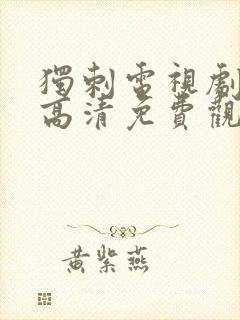 獨刺電視劇
高清免費觀
黃紫燕